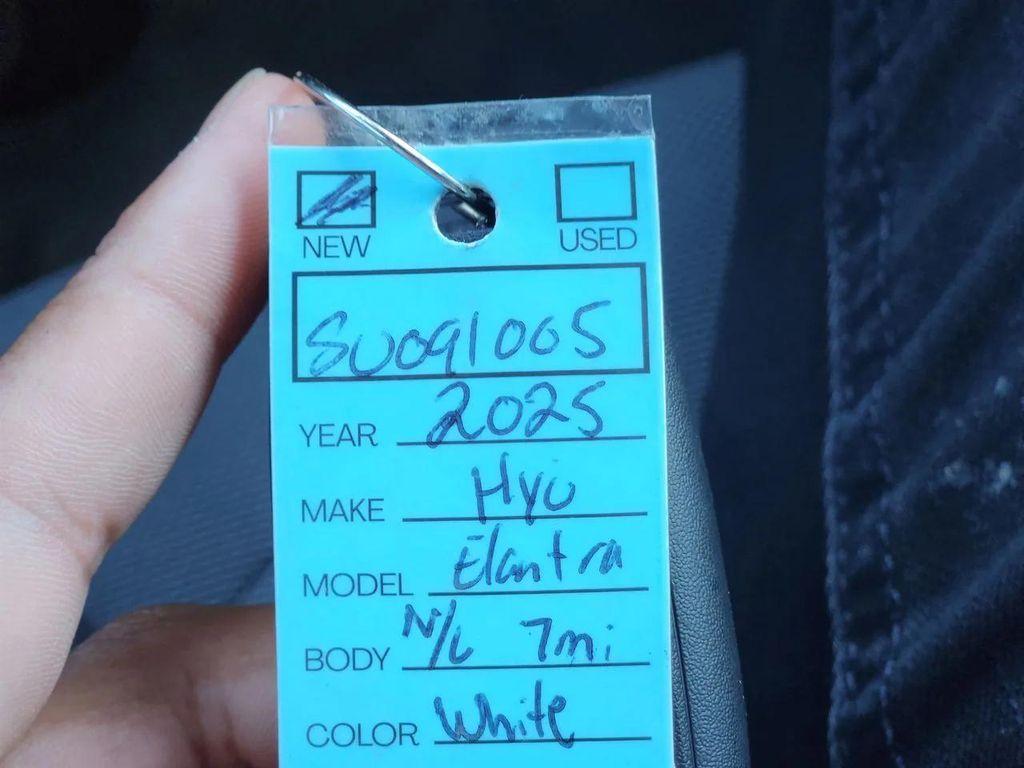 NEW USED
SU091005
YEAR 2025
MAKE Hyu
MODEL Elantra
BODY N/L 7mi
COLOR White